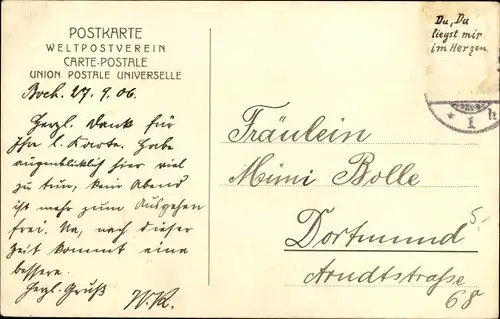 POSTKARTE
WELTPOSTVEREIN
CARTE-POSTALE
UNION POSTALE UNIVERSELLE
Boch. 27. 9. 06.
Herzl. Dank für
Ihre l. Karte. Habe
augenblicklich hier viel
zu tun, kein Abend
ist mehr zum Ausgehen
frei. Na, nach dieser
Zeit kommt eine
bessere.
Herzl. Gruß
W. K.
Du, Du
liegst mir
im Herzen
* 1
Fräulein
Mimi Bolle
Dortmund
Arndtstraße
68
5.-